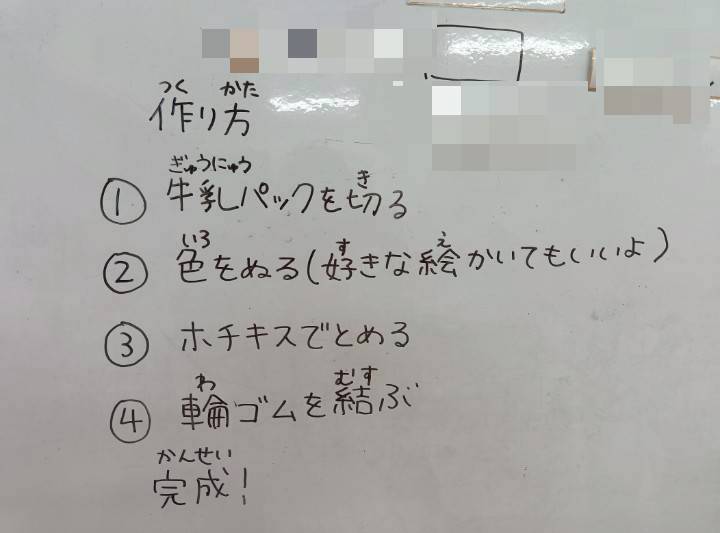 つく かた
作り方
ぎゅうにゅう き
① 牛乳パックを切る
いろ す え
② 色をぬる(好きな絵かいてもいいよ)
③ ホチキスでとめる
わ むす
④ 輪ゴムを結ぶ
かんせい
完成!